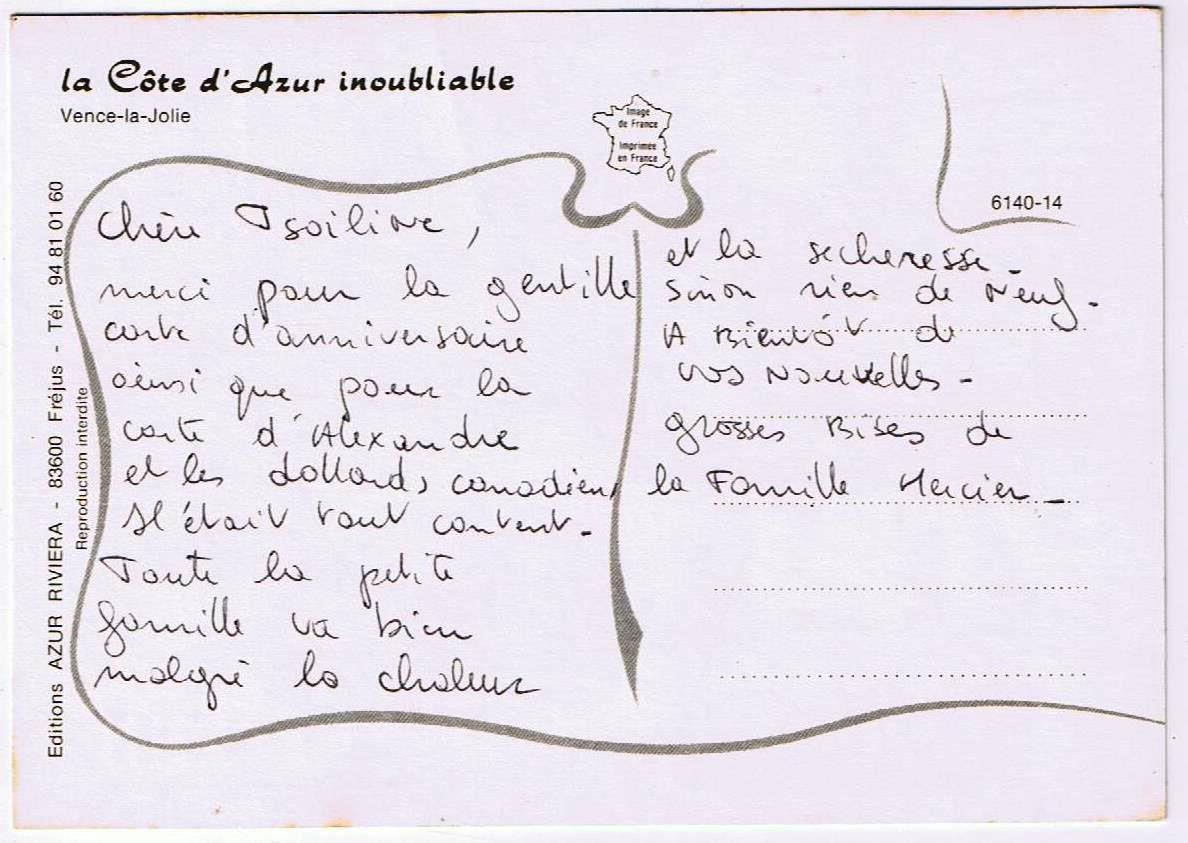 la Côte d'Azur inoubliable
Vence-la-Jolie
Image
de France
Imprimée
en France
6140-14
Editions AZUR RIVIERA - 83600 Fréjus - Tél. 94 81 01 60
Reproduction interdite
Chère
merci pour la gentille
carte d'anniversaire
ainsi que pour la
carte d'Alexandre
et les dollards canadiens
Il était tout content.
Toute la petite
famille va bien
malgré la chaleur
et la secheresse.
Sinon rien de Neuf.
A Bientôt de
vos Nouvelles -
grosses Bises de
la Famille Mercier -